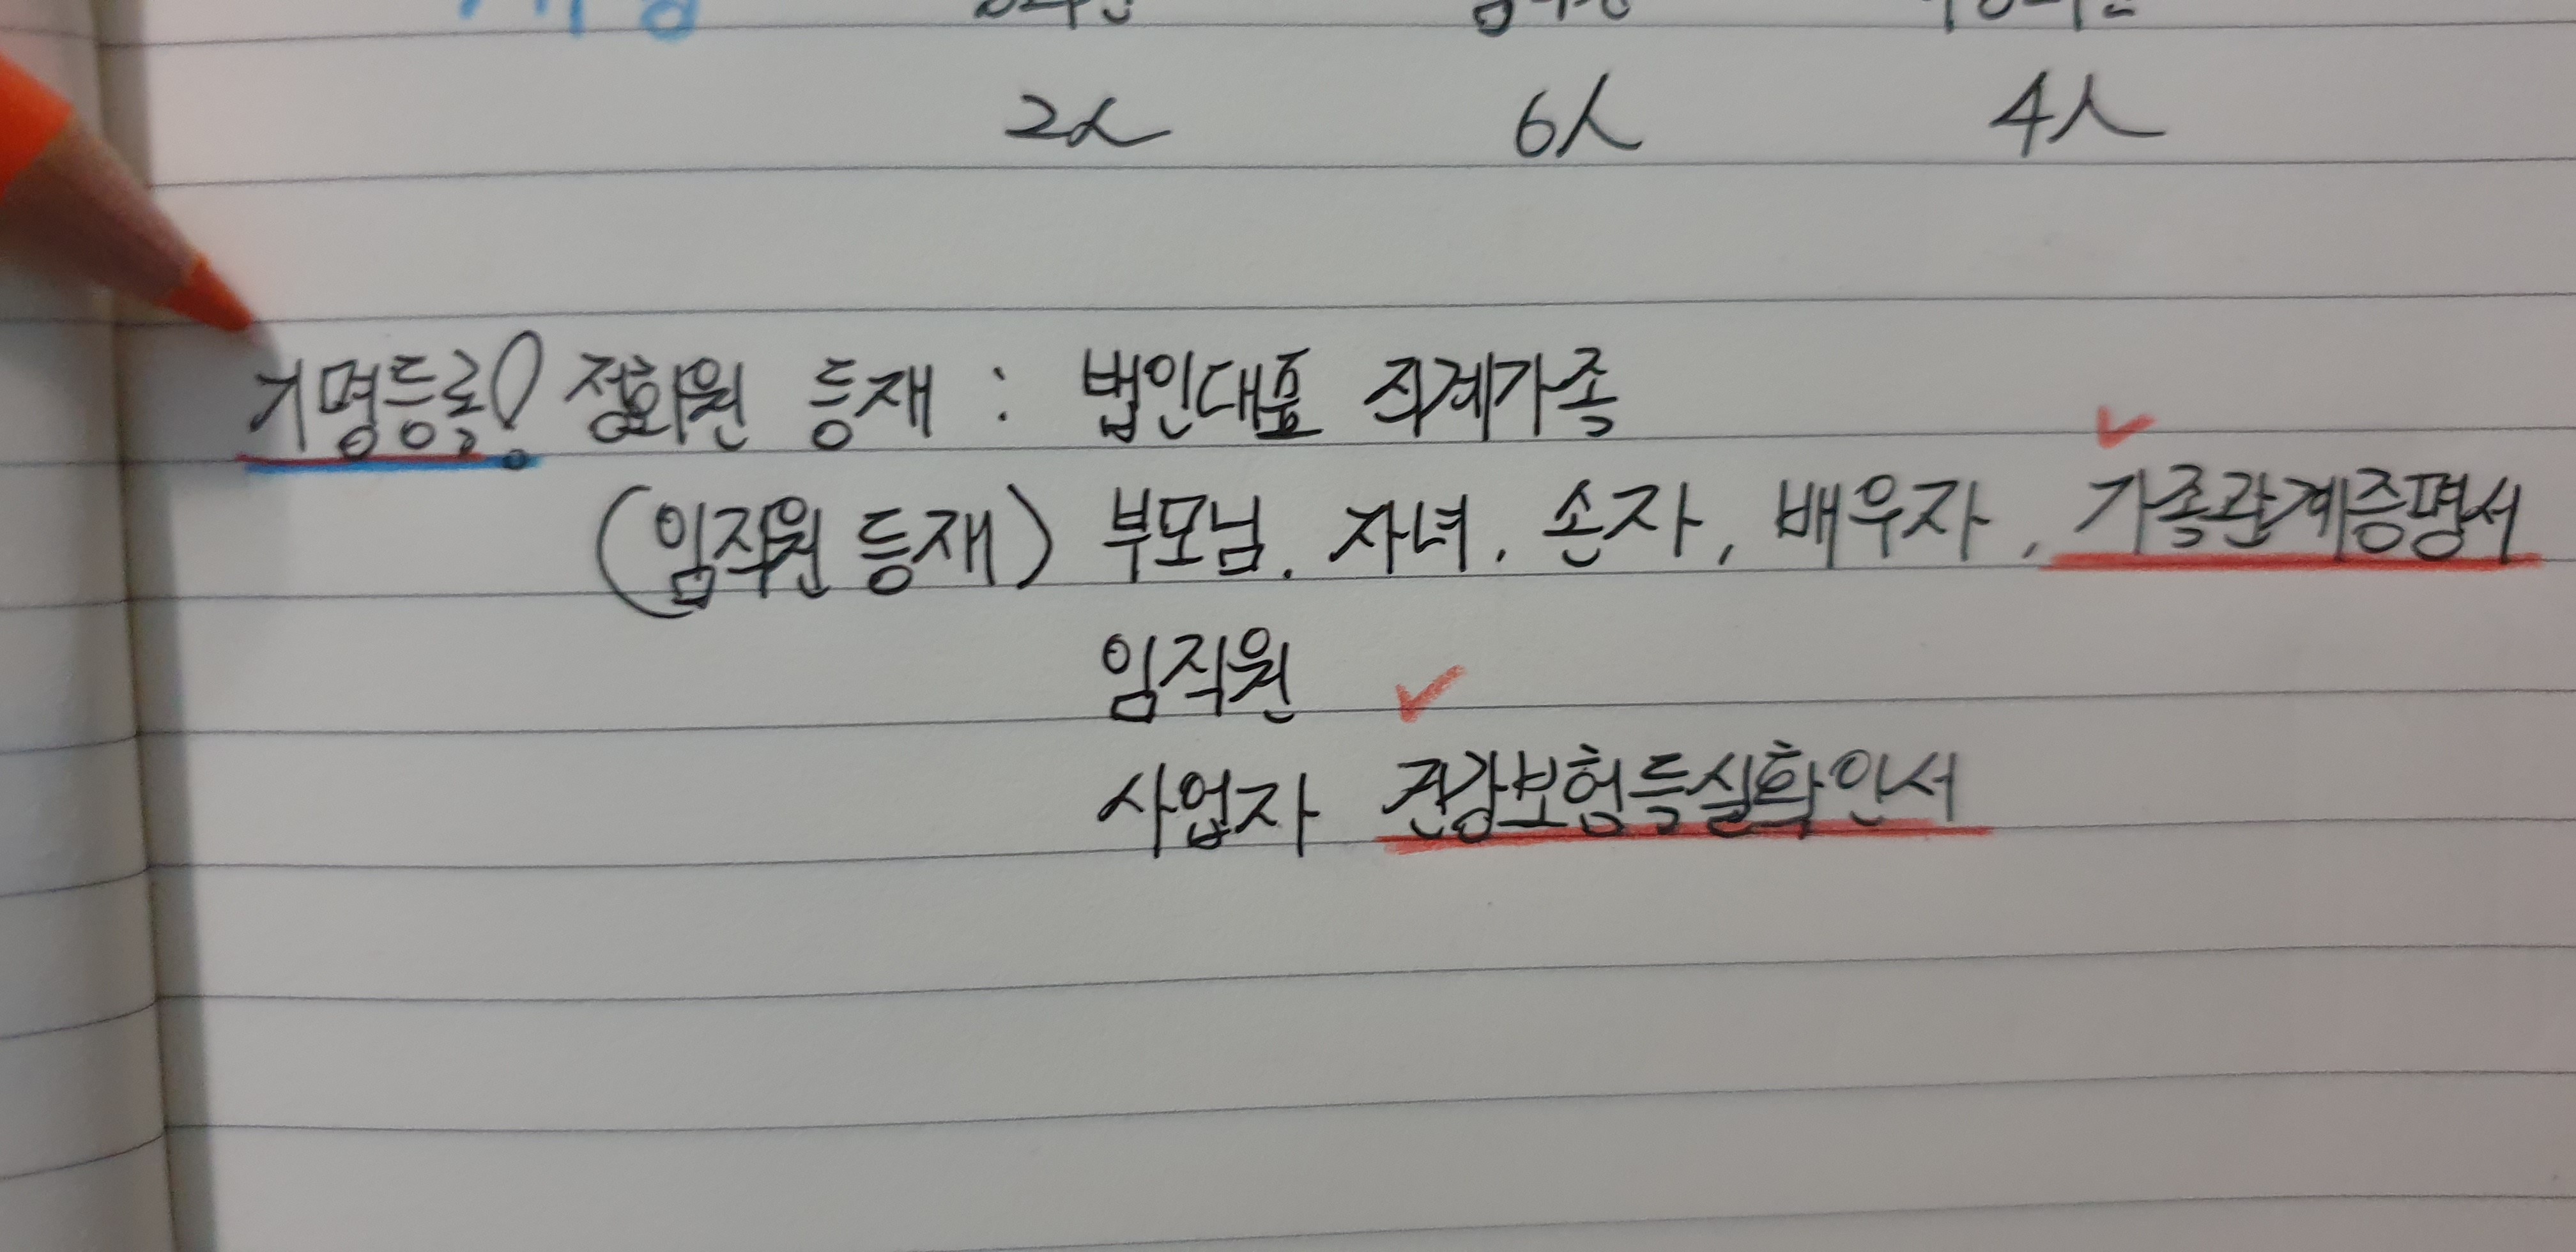 2人 6人 4人
기명등록! 정회원 등재 : 법인대표 직계가족
(임직원 등재) 부모님. 자녀. 손자, 배우자, 가족관계증명서
임직원
사업자 건강보험득실확인서